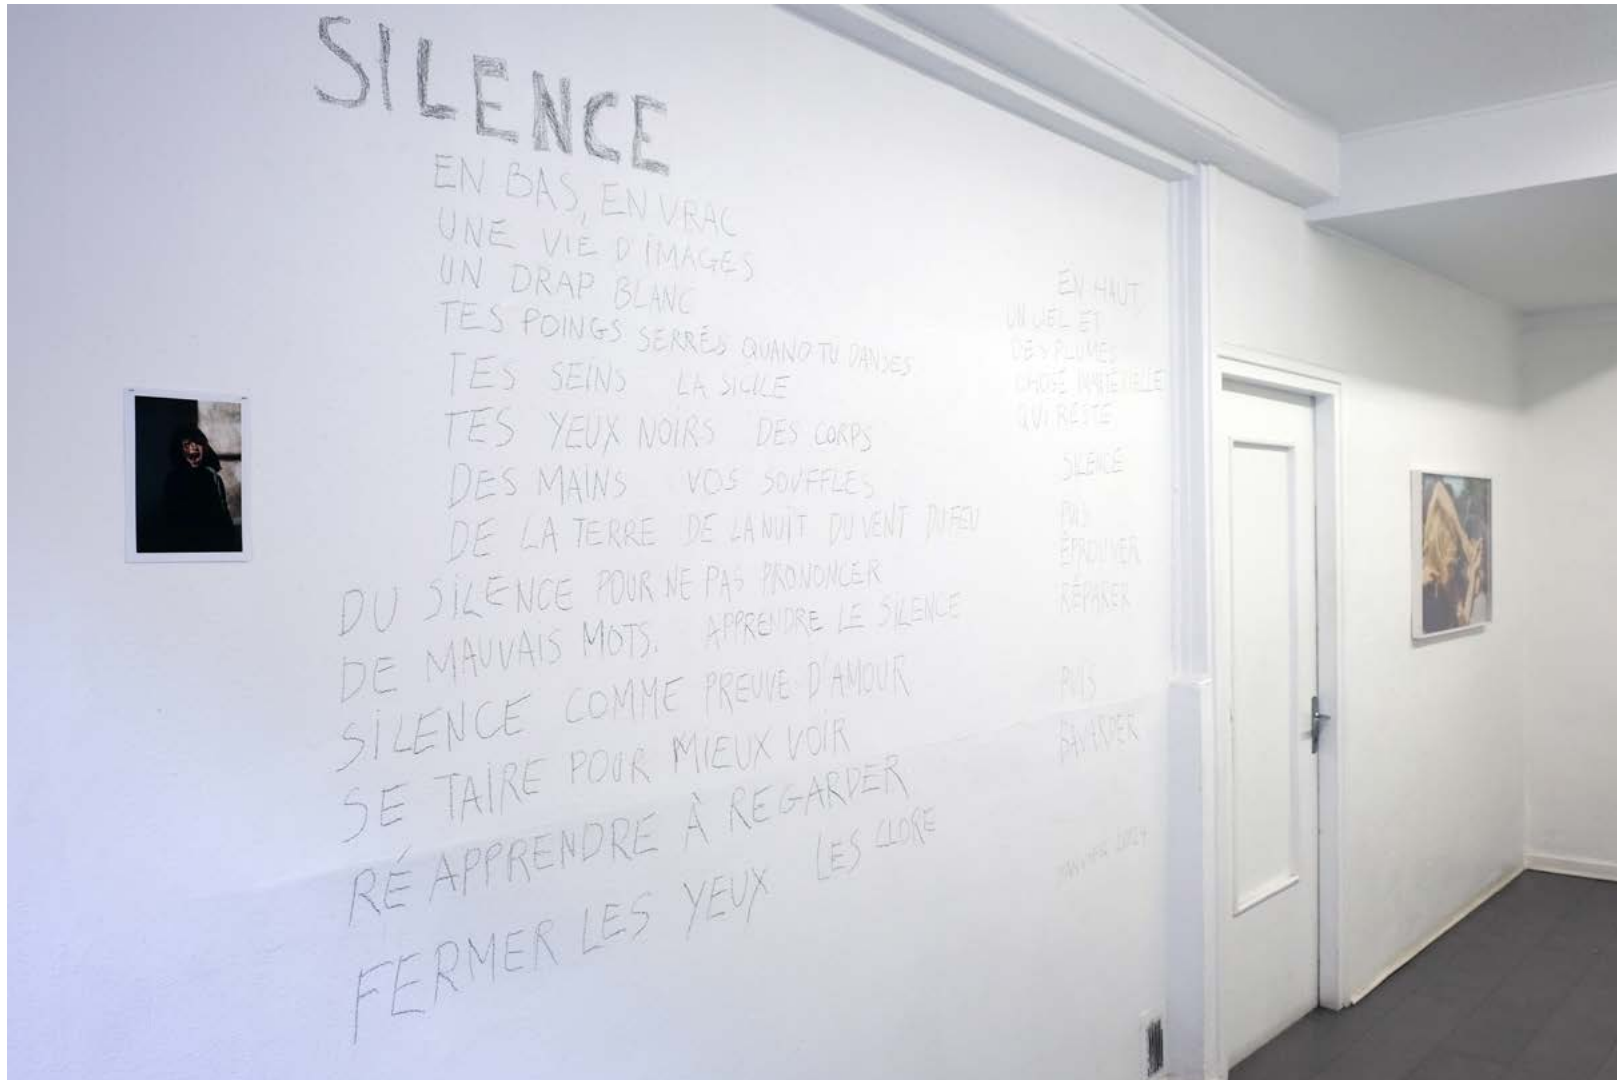 SILENCE
EN BAS, EN VRAC
UNE VIE D'IMAGES
UN DRAP BLANC
TES POINGS SERRÉS QUAND TU DANSES
TES SEINS LA SICILE
TES YEUX NOIRS DES CORPS
DES MAINS VOS SOUFFLES
DE LA TERRE DE LA NUIT DU VENT DU FEU
DU SILENCE POUR NE PAS PRONONCER
DE MAUVAIS MOTS. APPRENDRE LE SILENCE
SILENCE COMME PREUVE D'AMOUR
SE TAIRE POUR MIEUX VOIR
RÉAPPRENDRE À REGARDER
FERMER LES YEUX LES CLORE
EN HAUT
UN CIEL ET
DES PLUMES
CHOSE IMMATÉRIELLE
QUI RESTE
SILENCE
PUIS
ÉPROUVER
RÉPARER
PUIS
BAVARDER
2024